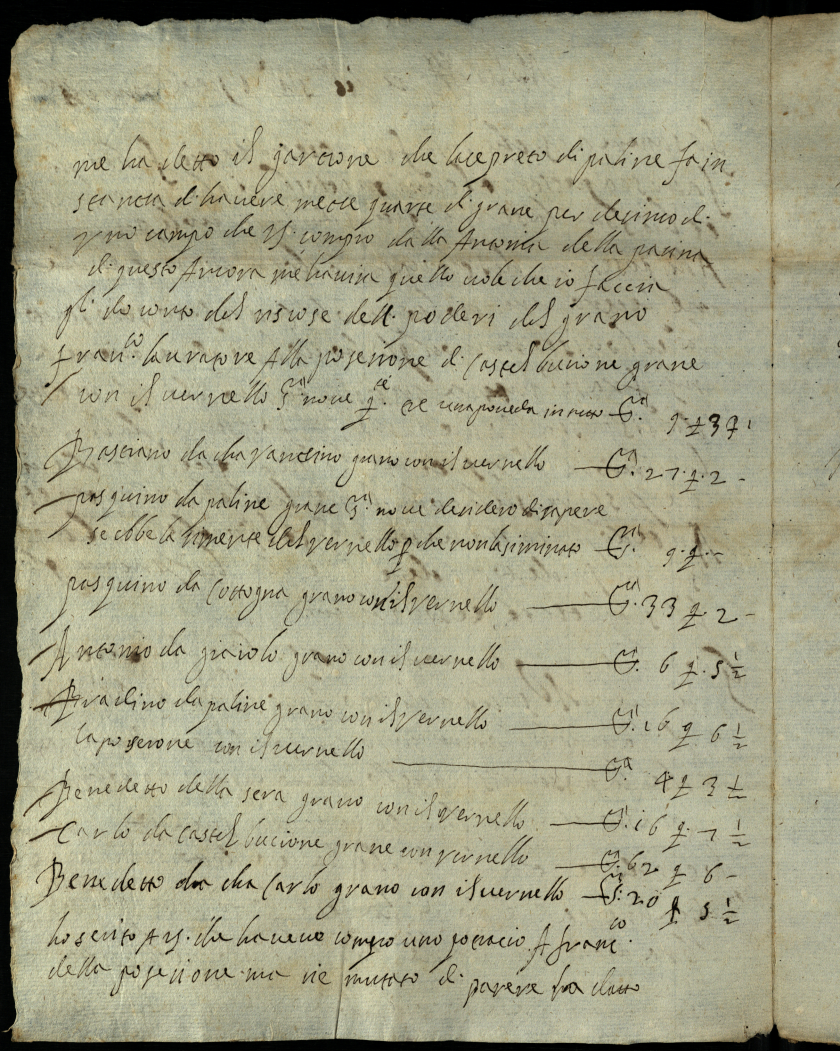 me ha detto il garzone che lacepreto di paline fa in
stanzia d'havere mezze quarte di grane per decimo di
uno campo che V.S. compro dalla Antonia della pacina
di questo Ancora me havisa quello vole che io faccia
gli do conto del riscose dell. poderi del grano
Fran.co lavratore Alla posesione di Castel bucione grane
con il vernello S.ra nove q.te et una poveda in tutto S.ra 9 q 3 7
Basciano da cha Vancino grano con il vernello S.ra 27 q. 2 -
pasquino da paline grane S.ra nove desidero di sapere
se ebbe la simente del vernello p che non la siminato S.ra 9 q. -
pasquino da Cottogna grano con il vernello S.ra 33 q 2 -
Antonio da giaiolo grano con il vernello S. 6 q. 5 ½
Biadino da paline grano con il vernello S.ra 16 q 6 ½
la posesione con il vernello S.ra 4 q 3 ½
Benedetto della sera grano con il vernello S.ra 16 q. 7 ½
Carlo da Castel bucione grane con vernello S. 62 q 6 -
Benedetto da cha Carlo grano con il vernello S.ra 20 q 5 ½
ho scrito A V.S. che havevo compro uno A Franc.co
della posesione ma sie mutato di parere ha datto